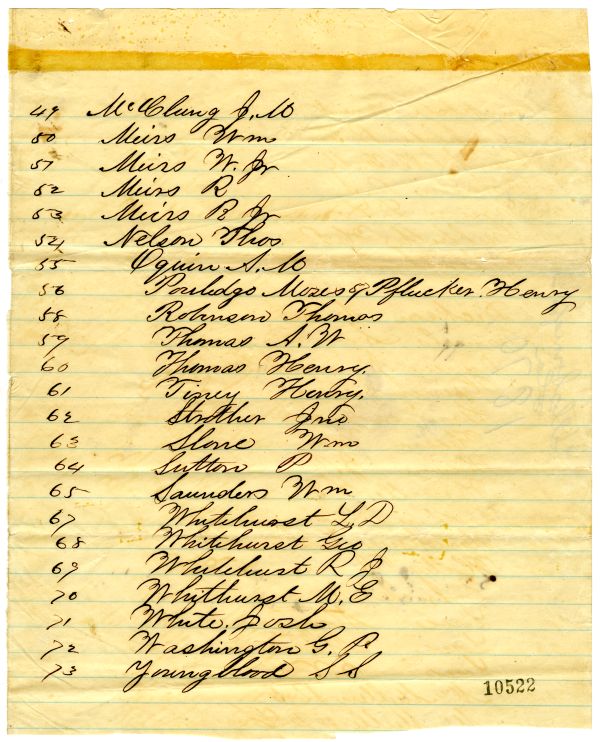 49 McClung J. M
50 Meirs Wm
51 Meirs W. Jr
52 Meirs R
53 Meirs R Jr
54 Nelson Thos
55 Oquin A. M
56 Moses & Pflucker. Henry
58 Robinson Thomas
59 Thomas A. W
60 Thomas Henry.
61 Henry.
62 Strother Jno
63 Slone Wm
64 Sutton P
65 Saunders Wm
67 Whitehurst L. D
68 Whitehurst Geo
69 Whitehurst R J
70 Whithurst M. E
71 White, Josh
72 Washington G. P.
73 Youngblood S S
10522